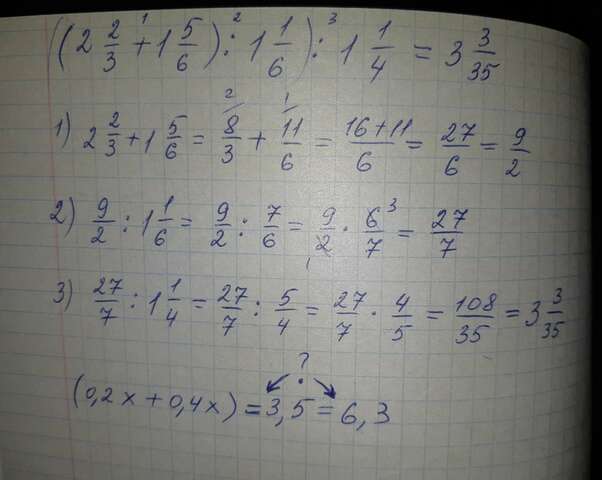 ((2 2/3 + 1 5/6) : 1 1/6) : 1 1/4 = 3 3/35
1) 2 2/3 + 1 5/6 = 8/3 + 11/6 = 16+11/6 = 27/6 = 9/2
2) 9/2 : 1 1/6 = 9/2 : 7/6 = 9/2 · 6/7 = 27/7
3) 27/7 : 1 1/4 = 27/7 : 5/4 = 27/7 · 4/5 = 108/35 = 3 3/35
?
(0,2x + 0,4x) = 3,5 = 6,3